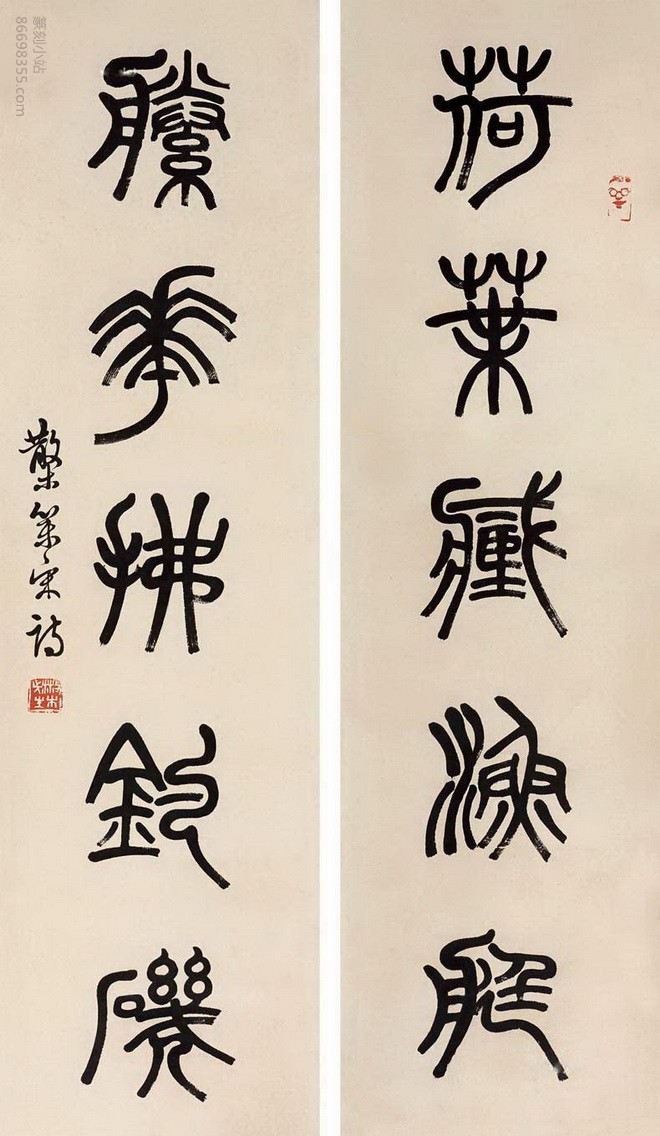 荷葉藏漁艇
縢華拂釣磯
散木集宋詩
篆刻小站
86698355.com